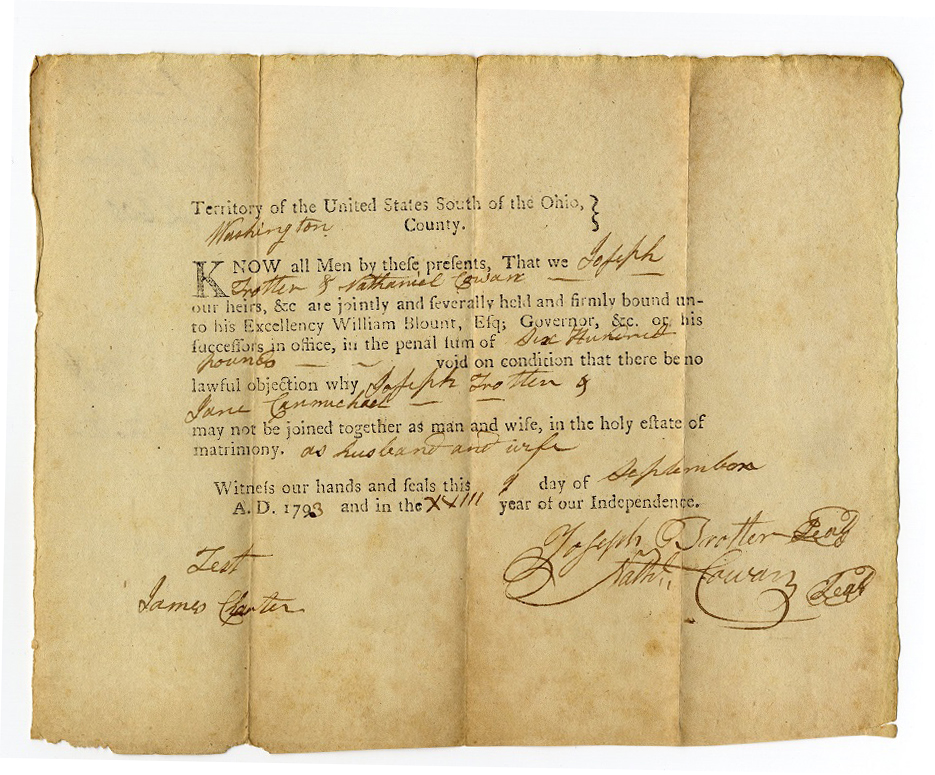 Territory of the United States South of the Ohio, }
Washington County.
KNOW all Men by theſe preſents, That we Joseph
Trotter & Nathaniel Cowan —
our heirs, &c are jointly and ſeverally held and firmly bound un-
to his Excellency William Blount, Eſq; Governor, &c. or his
ſucceſſors in office, in the penal ſum of Six Hundred
pounds — — ~ void on condition that there be no
lawful objection why Joseph Trotter &
Jane Carmichael —
may not be joined together as man and wife, in the holy eſtate of
matrimony. as husband and wife
Witneſs our hands and ſeals this 9 day of September
A. D. 1793 and in the XVIII year of our Independence.
Joseph Trotter Seal
Test Nathl. Cowan Seal
James Charter